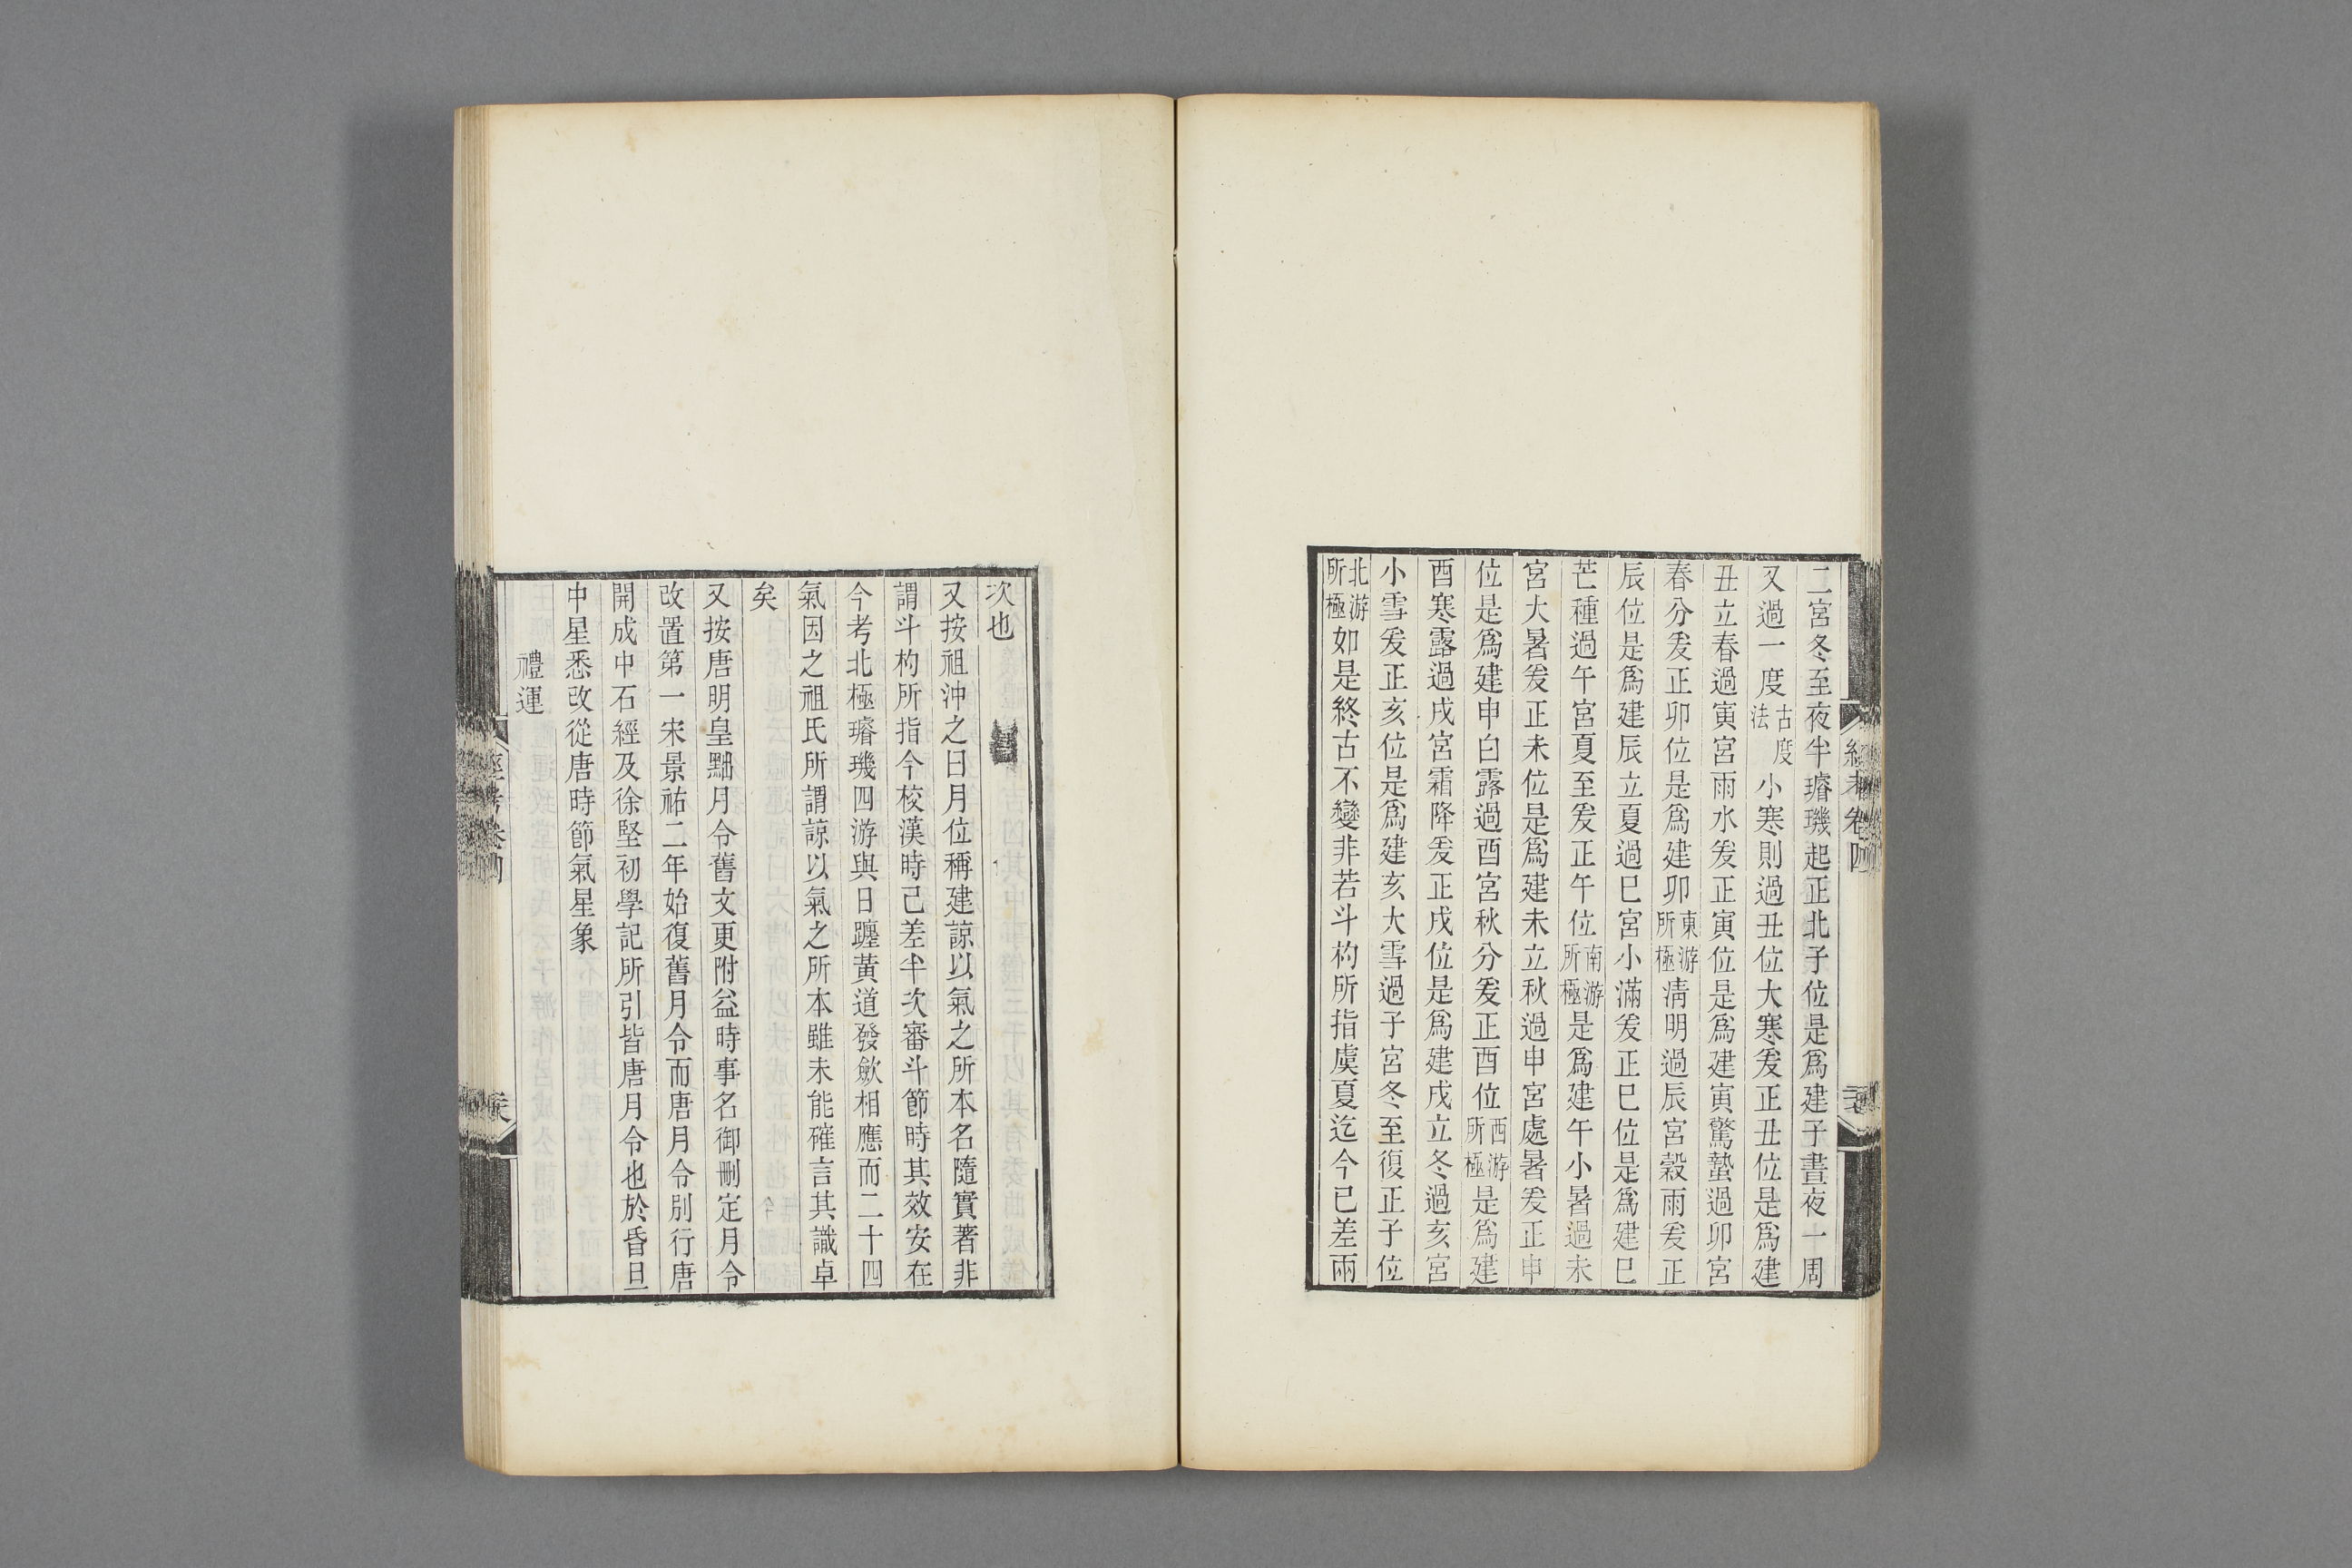 二宮冬至夜半璿璣起正北子位是爲建子晝夜一周
又過一度古度法小寒則過丑位大寒爰正丑位是爲建
丑立春過寅宮雨水爰正寅位是爲建寅驚蟄過卯宮
春分爰正卯位是爲建卯東游所極淸明過辰宮穀雨爰正
辰位是爲建辰立夏過巳宮小滿爰正巳位是爲建巳
芒種過午宮夏至爰正午位南游所極是爲建午小暑過未
宮大暑爰正未位是爲建未立秋過申宮處暑爰正申
位是爲建申白露過酉宮秋分爰正酉位西游所極是爲建
酉寒露過戌宮霜降爰正戌位是爲建戌立冬過亥宮
小雪爰正亥位是爲建亥大雪過子宮冬至復正子位
北游所極如是終古不變非若斗杓所指虞夏迄今已差兩
經考卷四
次也
又按祖沖之曰月位稱建諒以氣之所本名隨實著非
謂斗杓所指今校漢時已差半次審斗節時其效安在
今考北極璿璣四游與日躔黃道發斂相應而二十四
氣因之祖氏所謂諒以氣之所本雖未能確言其識卓
矣
又按唐明皇黜月令舊文更附益時事名御刪定月令
改置第一宋景祐二年始復舊月令而唐月令別行唐
開成中石經及徐堅初學記所引皆唐月令也於昏旦
中星悉改從唐時節氣星象
禮運
經考卷四